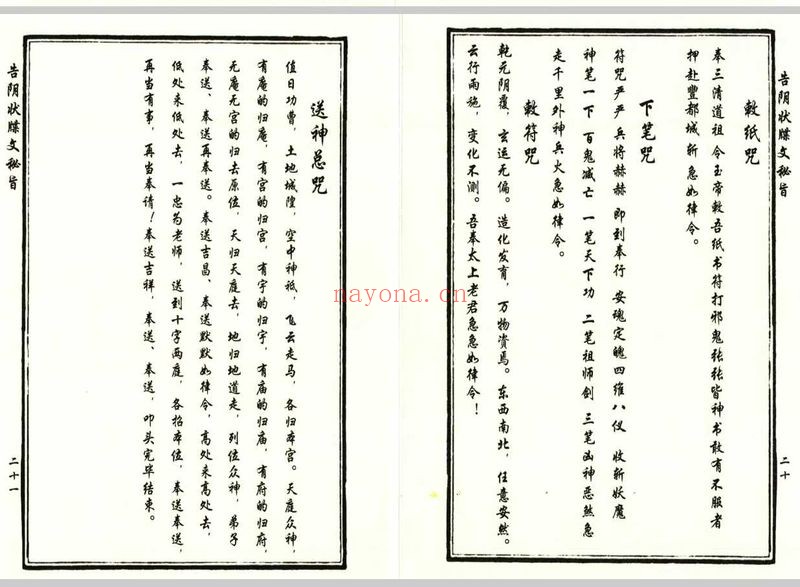 告阴状牒文秘旨
二十
敕纸咒
奉三清道祖 令玉帝敕吾纸书符打邪鬼张张皆神书敢有不服者
押赴豐都城 斩 急如律令。
下笔咒
符咒严严 兵将赫赫 即到奉行 安魂定魄四维八仪 收斩妖魔
神笔一下 百鬼灭亡 一笔天下功 二笔祖师剑 三笔凶神恶煞急
走千里外神兵火急如律令。
敕符咒
乾元阴覆，玄运无偏。造化发育，万物资焉。东西南北，任意安然。
云行雨施，变化不测。吾奉太上老君急急如律令！
送神总咒
值日功曹，土地城隍，空中神祇，飞云走马，各归本宫。天庭众神，
有庵的归庵，有宫的归宫，有宇的归宇，有庙的归庙，有府的归府，
无庵无宫的归去原位，天归天庭去，地归地道走，列位众神，弟子
奉送、奉送再奉送。奉送吉昌、奉送默默如律令，高处来高处去，
低处来低处去，一忠为老师，送到十字两庭，各招本位，奉送奉送，
再当有事，再当奉请！奉送吉祥，奉送、奉送，叩头完毕结束。
告阴状牒文秘旨
二十一
nayona.cn